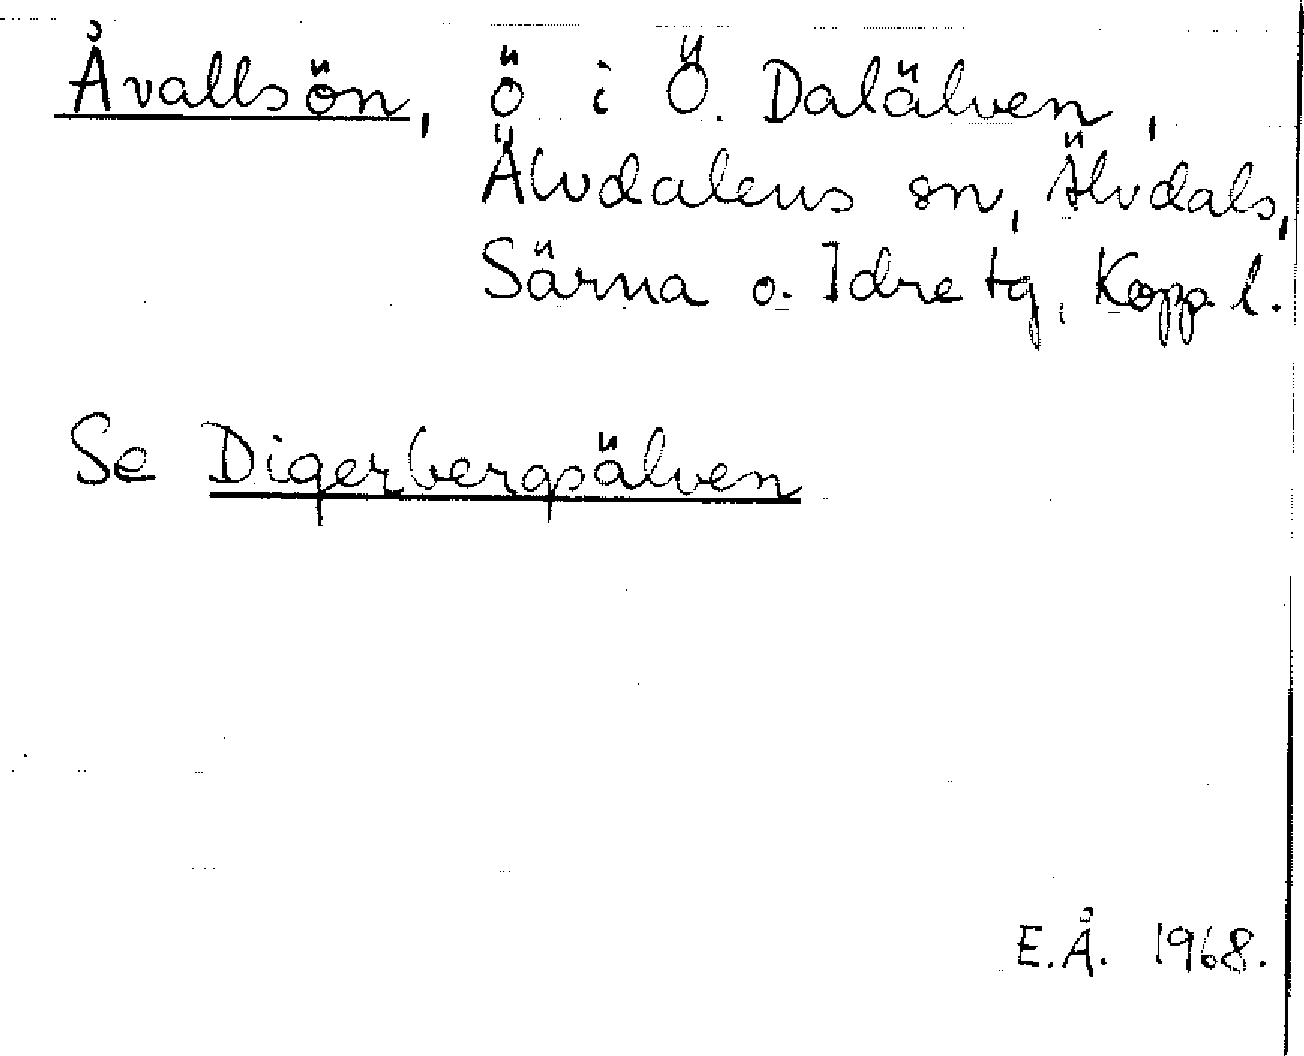 Åvallsön, ö i Ö. Dalälven,
Älvdalens sn, Älvdals,
Särna o. Idre tg, Kopp. l.
Se Digerbergsälven
E.Å. 1968.